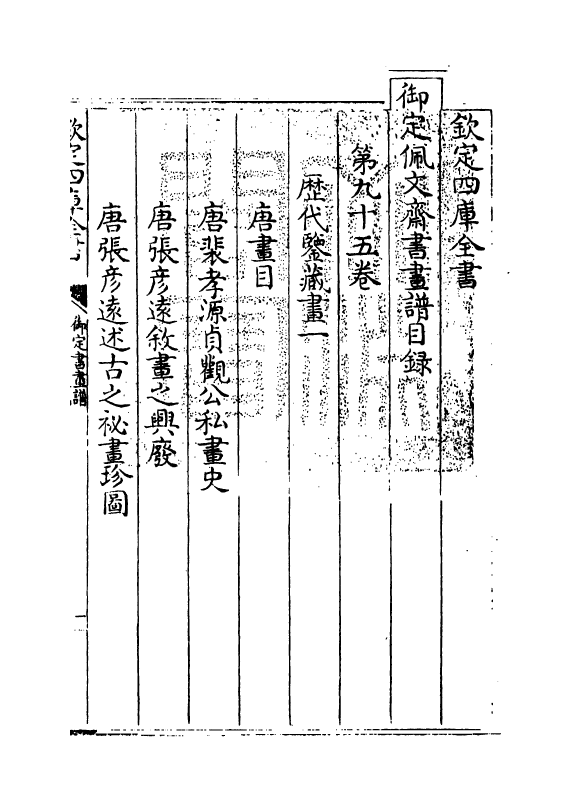 欽定四庫全書
御定佩文齋書畫譜目録
第九十五卷
歴代鑒藏畫一
唐畫目
唐裴孝源貞觀公私畫史
唐張彦遠敘畫之興廢
唐張彦遠述古之祕畫珍圖
欽定四庫全書
御定書畫譜
一